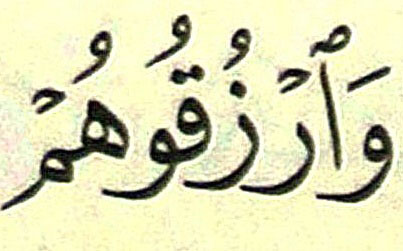 وَٱرْزُقُوهُمْ